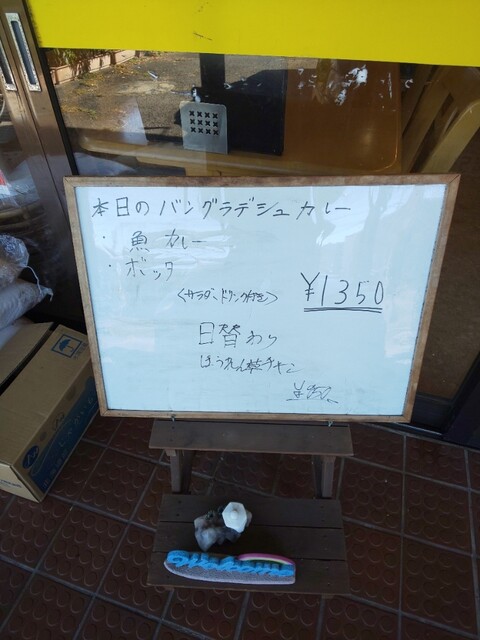 本日のバングラデシュカレー
・魚カレー
・ボッタ
<サラダ、ドリンク付き>
¥1350
日替わり
ほうれん草チキン
¥950